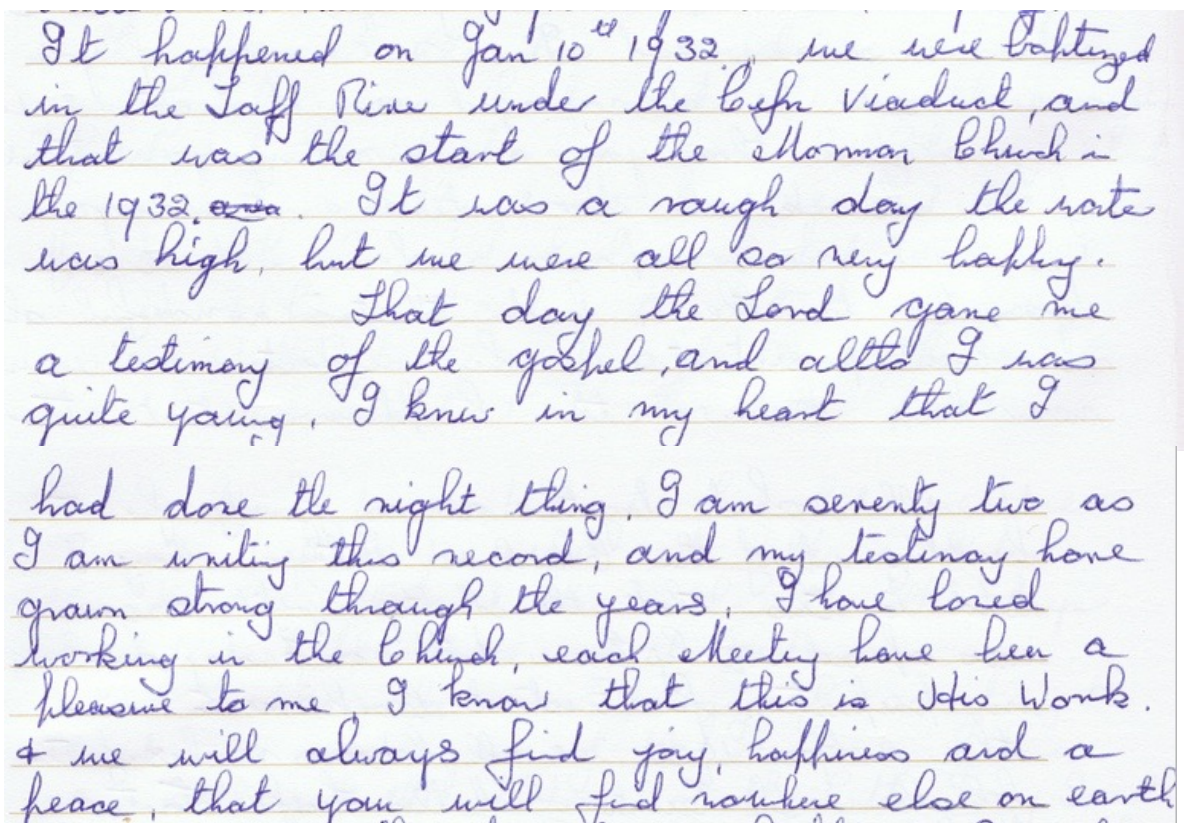 It happened on Jan 10th 1932, we were baptized
in the Taff River under the Cefn Viaduct, and
that was the start of the Mormon Church in
the 1932. area. It was a rough day the water
was high, but we were all so very happy.
That day the Lord gave me
a testimony of the gospel, and altho I was
quite young, I knew in my heart that I
had done the right thing. I am seventy two as
I am writing this record, and my testimony have
grown strong through the years. I have loved
working in the Church, each Meeting have been a
pleasure to me, I know that this is His Work.
& we will always find joy, happiness and a
peace, that you will find nowhere else on earth